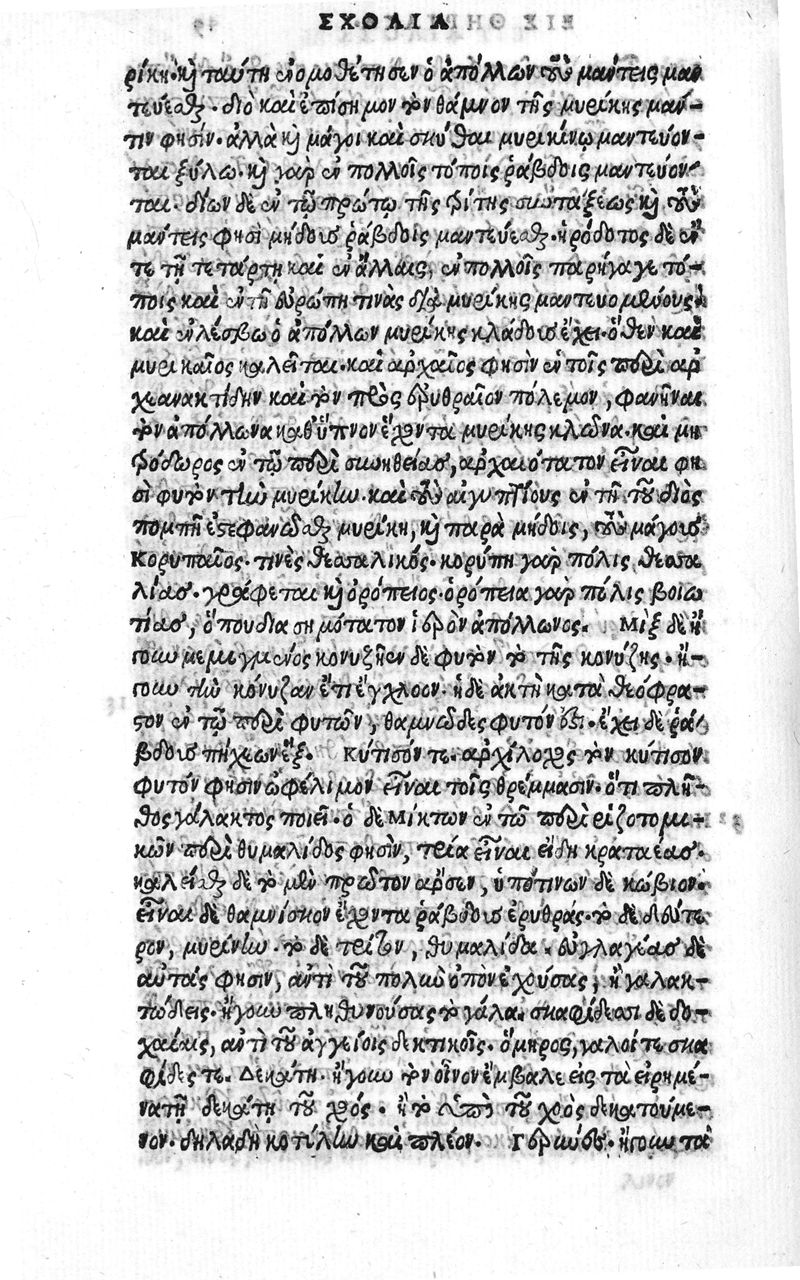 ΣΧΟΛΙΑ
ρίκη. καὶ ταύτῃ ἐνομοθέτησεν ὁ ἀπόλλων τοὺς μαντεις μαν
τεύεσθαι. διὸ καὶ ἐπίσημον τὸν θάμνον τῆς μυρίκης μάν-
τιν φησίν. ἀλλὰ καὶ μάγοι καὶ σκύθαι μυρικίνῳ μαντεύον-
ται ξύλῳ. καὶ γαρ ἐν πολλοῖς τόποις ῥάβδοις μαντεύον
ται. δίων δὲ ἐν τῷ πρώτῳ τῆς τρίτης συντάξεως καὶ τοὺς
μάντεις φησὶ μήδους ῥάβδοις μαντεύεσθαι. ἡρόδοτος δὲ ἔν
τε τῇ τετάρτῃ καὶ ἐν ἄλλαις, ἐν πολλοῖς παρήγαγε τό-
ποις καὶ ἐν τῇ εὐρώπῃ τινὰς διὰ μυρίκης μαντευομένους.
καὶ ἐν λέσβῳ ὁ ἀπόλλων μυρίκης κλάδους ἔχει. ὅθεν καὶ
μυρικαῖος καλεῖται. καὶ αρχαῖος φησὶν ἐν τοῖς περὶ αρ
χεανακτίδην καὶ τὸν πρὸς ἐρυθραῖον πόλεμον, φανῆναι
τὸν ἀπόλλωνα καθ' ὕπνον ἔχοντα μυρίκης κλῶνα. καὶ μη
τρόδωρος ἐν τῷ περὶ συνηθείας, αρχαιότατον εἶναι φη
σὶ φυτὸν τὴν μυρίκην. καὶ τοὺς αἰγυπτίους ἐν τῇ τοῦ διὸς
πομπῇ ἐστεφανῶσθαι μυρίκῃ, καὶ παρὰ μήδοις, τοὺς μάγους
Κορυπαῖος. τινὲς θεσσαλικός. κορύπη γαρ πόλις θεσσα
λίας. γράφεται καὶ ὀρόπειος. ὀρόπεια γαρ πόλις βοιω
τίας, ὅπου διασημότατον ἱερὸν ἀπόλλωνος. Μὶξ δὲ ἤ
γουν μεμιγμένος κονυζῆεν δὲ φυτὸν τὸ τῆς κονύζης. ἤ-
γουν τὴν κόνυζαν ἔτι ἔγχλοον. ἡ δὲ ἀκτὴ κατὰ θεόφρα-
στον ἐν τῷ περὶ φυτῶν, θαμνῶδες φυτόν ἐστι. ἔχει δὲ ῥά-
βδους πήχεων ἓξ. Κύτισόν τε. αρχίλοχος τὸν κύτισον
φυτόν φησιν ὠφέλιμον εἶναι τοῖς θρέμμασιν. ὅτι πλῆ-
θος γάλακτος ποιεῖ. ὁ δὲ Μίκτων ἐν τῷ περὶ ῥιζοτομι-
κῶν περὶ θυμαλίδος φησὶν, τρία εἶναι εἴδη κραταιάς.
καλεῖσθαι δὲ τὸ μὲν πρῶτον αρσεν, ὑπό τινων δὲ κώβιον.
εἶναι δὲ θαμνίσκον ἔχοντα ῥάβδους ἐρυθράς. τὸ δὲ δεύτε
ρον, μυρίνην. τὸ δὲ τρίτον, θυμαλίδα. εὐγλαγέας δὲ
αὐτάς φησιν, ἀντὶ τοῦ πολὺν ὀπὸν ἐχούσας, ἢ γαλακ-
τώδεις. ἤγουν πληθυνούσας τὸ γάλα. σκαφίδεσσι δὲ δο-
χαίαις, ἀντὶ τοῦ ἀγγείοις δεκτικοῖς. ὅμηρος, γαλοί τε σκα
φίδες τε. Δεκάτῃ. ἤγουν τὸν οἶνον ἔμβαλε εἰς τὰ εἰρημέ-
να τῇ δεκάτῃ τοῦ χοός. ἢ τὸ ἀπὸ τοῦ χοὸς δεκατούμε-
νον. δηλαδὴ κοτύλην καὶ πλέον. Γεραιούς. ἤγουν τὰ